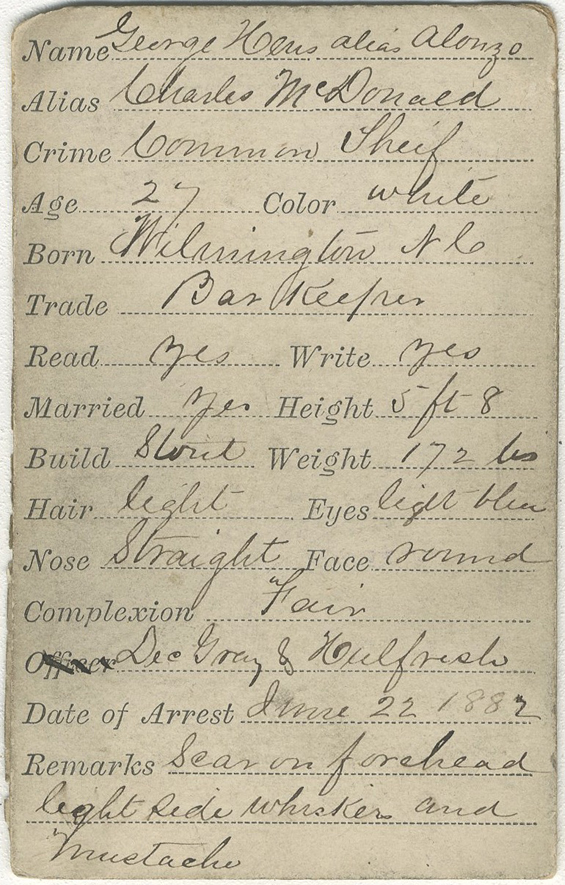 Name George Hens alias Alonzo
Alias Charles McDonald
Crime Common Theif
Age 27 Color white
Born Wilmington N C
Trade Bar Keeper
Read yes Write yes
Married yes Height 5 ft 8
Build Stout Weight 172 lbs
Hair light Eyes light blue
Nose Straight Face round
Complexion Fair
Officer Dec Gray & Hulfresh
Date of Arrest June 22 1882
Remarks Scar on forehead
light side whiskers and
mustache